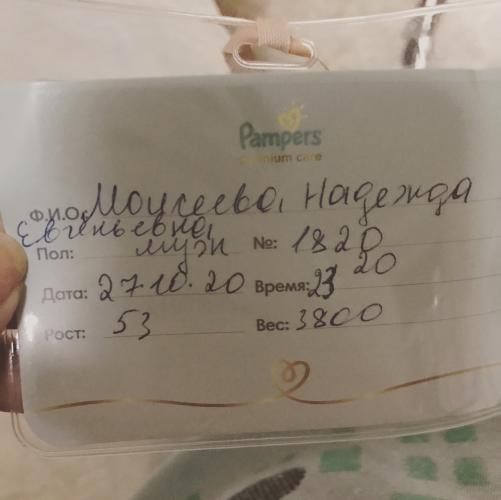 Pampers
premium care
Ф.И.О. Моисеева, Надежда
Евгеньевна,
Пол: муж №: 1820
Дата: 27.10.20 Время: 23 20
Рост: 53 Вес: 3800